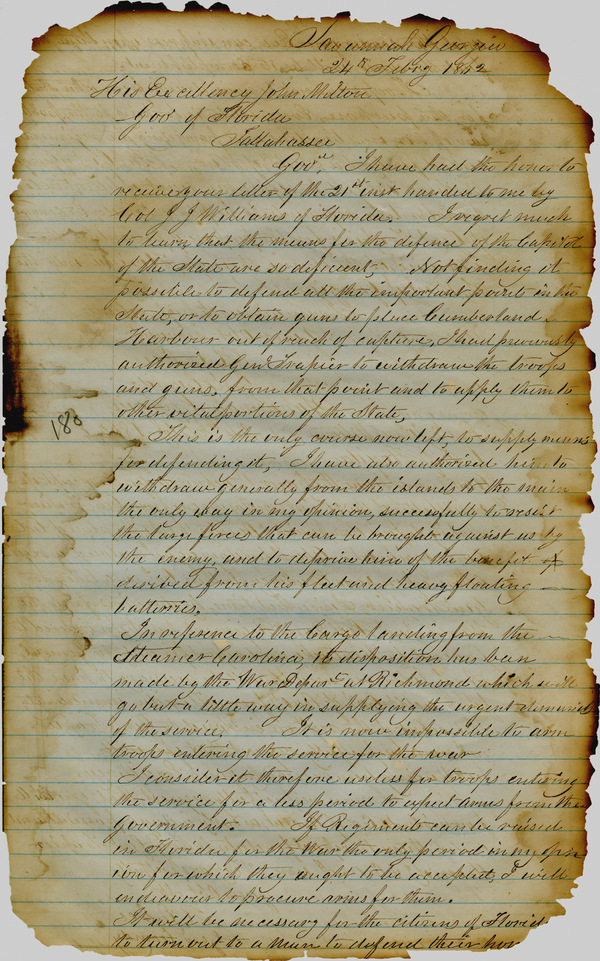 Savannah Georgia
24th Febry 1862
His Excellency John Milton
Govr of Florida
Tallahassee
Govr, I have had the honor to
receive your letter of the 21st inst handed to me by
Col J J Williams of Florida. I regret much
to learn that the means for the defence of the Capitol
of the State are so deficient, Not finding it
possible to defend all the important points in the
State, or to obtain guns to place Cumberland
Harbour out of reach of capture, I had previously
authorized Genl Trapier to withdraw the troops
and guns, from that point and to apply them to
other vital portions of the State,
180
This is the only course now left, to supply means
for defending it, I have also authorized him to
withdraw generally from the islands to the main
the only way in my opinion, successfully to resist
the large forces that can be brought against us by
the enemy, and to deprive him of the benefit of
derived from his fleet and heavy floating
batteries.
In reference to the Cargo landing from the
Steamer Carolina, its disposition has been
made by the War Depart at Richmond which will
go but a little way in supplying the urgent demands
of the service, It is now impossible to arm
troops entering the service for the war
I consider it therefore useless for troops entering
the service for a less period to expect arms from the
Government. If Regiments can be raised
in Florida for the War the only period in my opin
ion for which they ought to be accepted, I will
endeavour to procure arms for them.
It will be necessary for the citizens of Florid
to turn out to a man to defend their hom